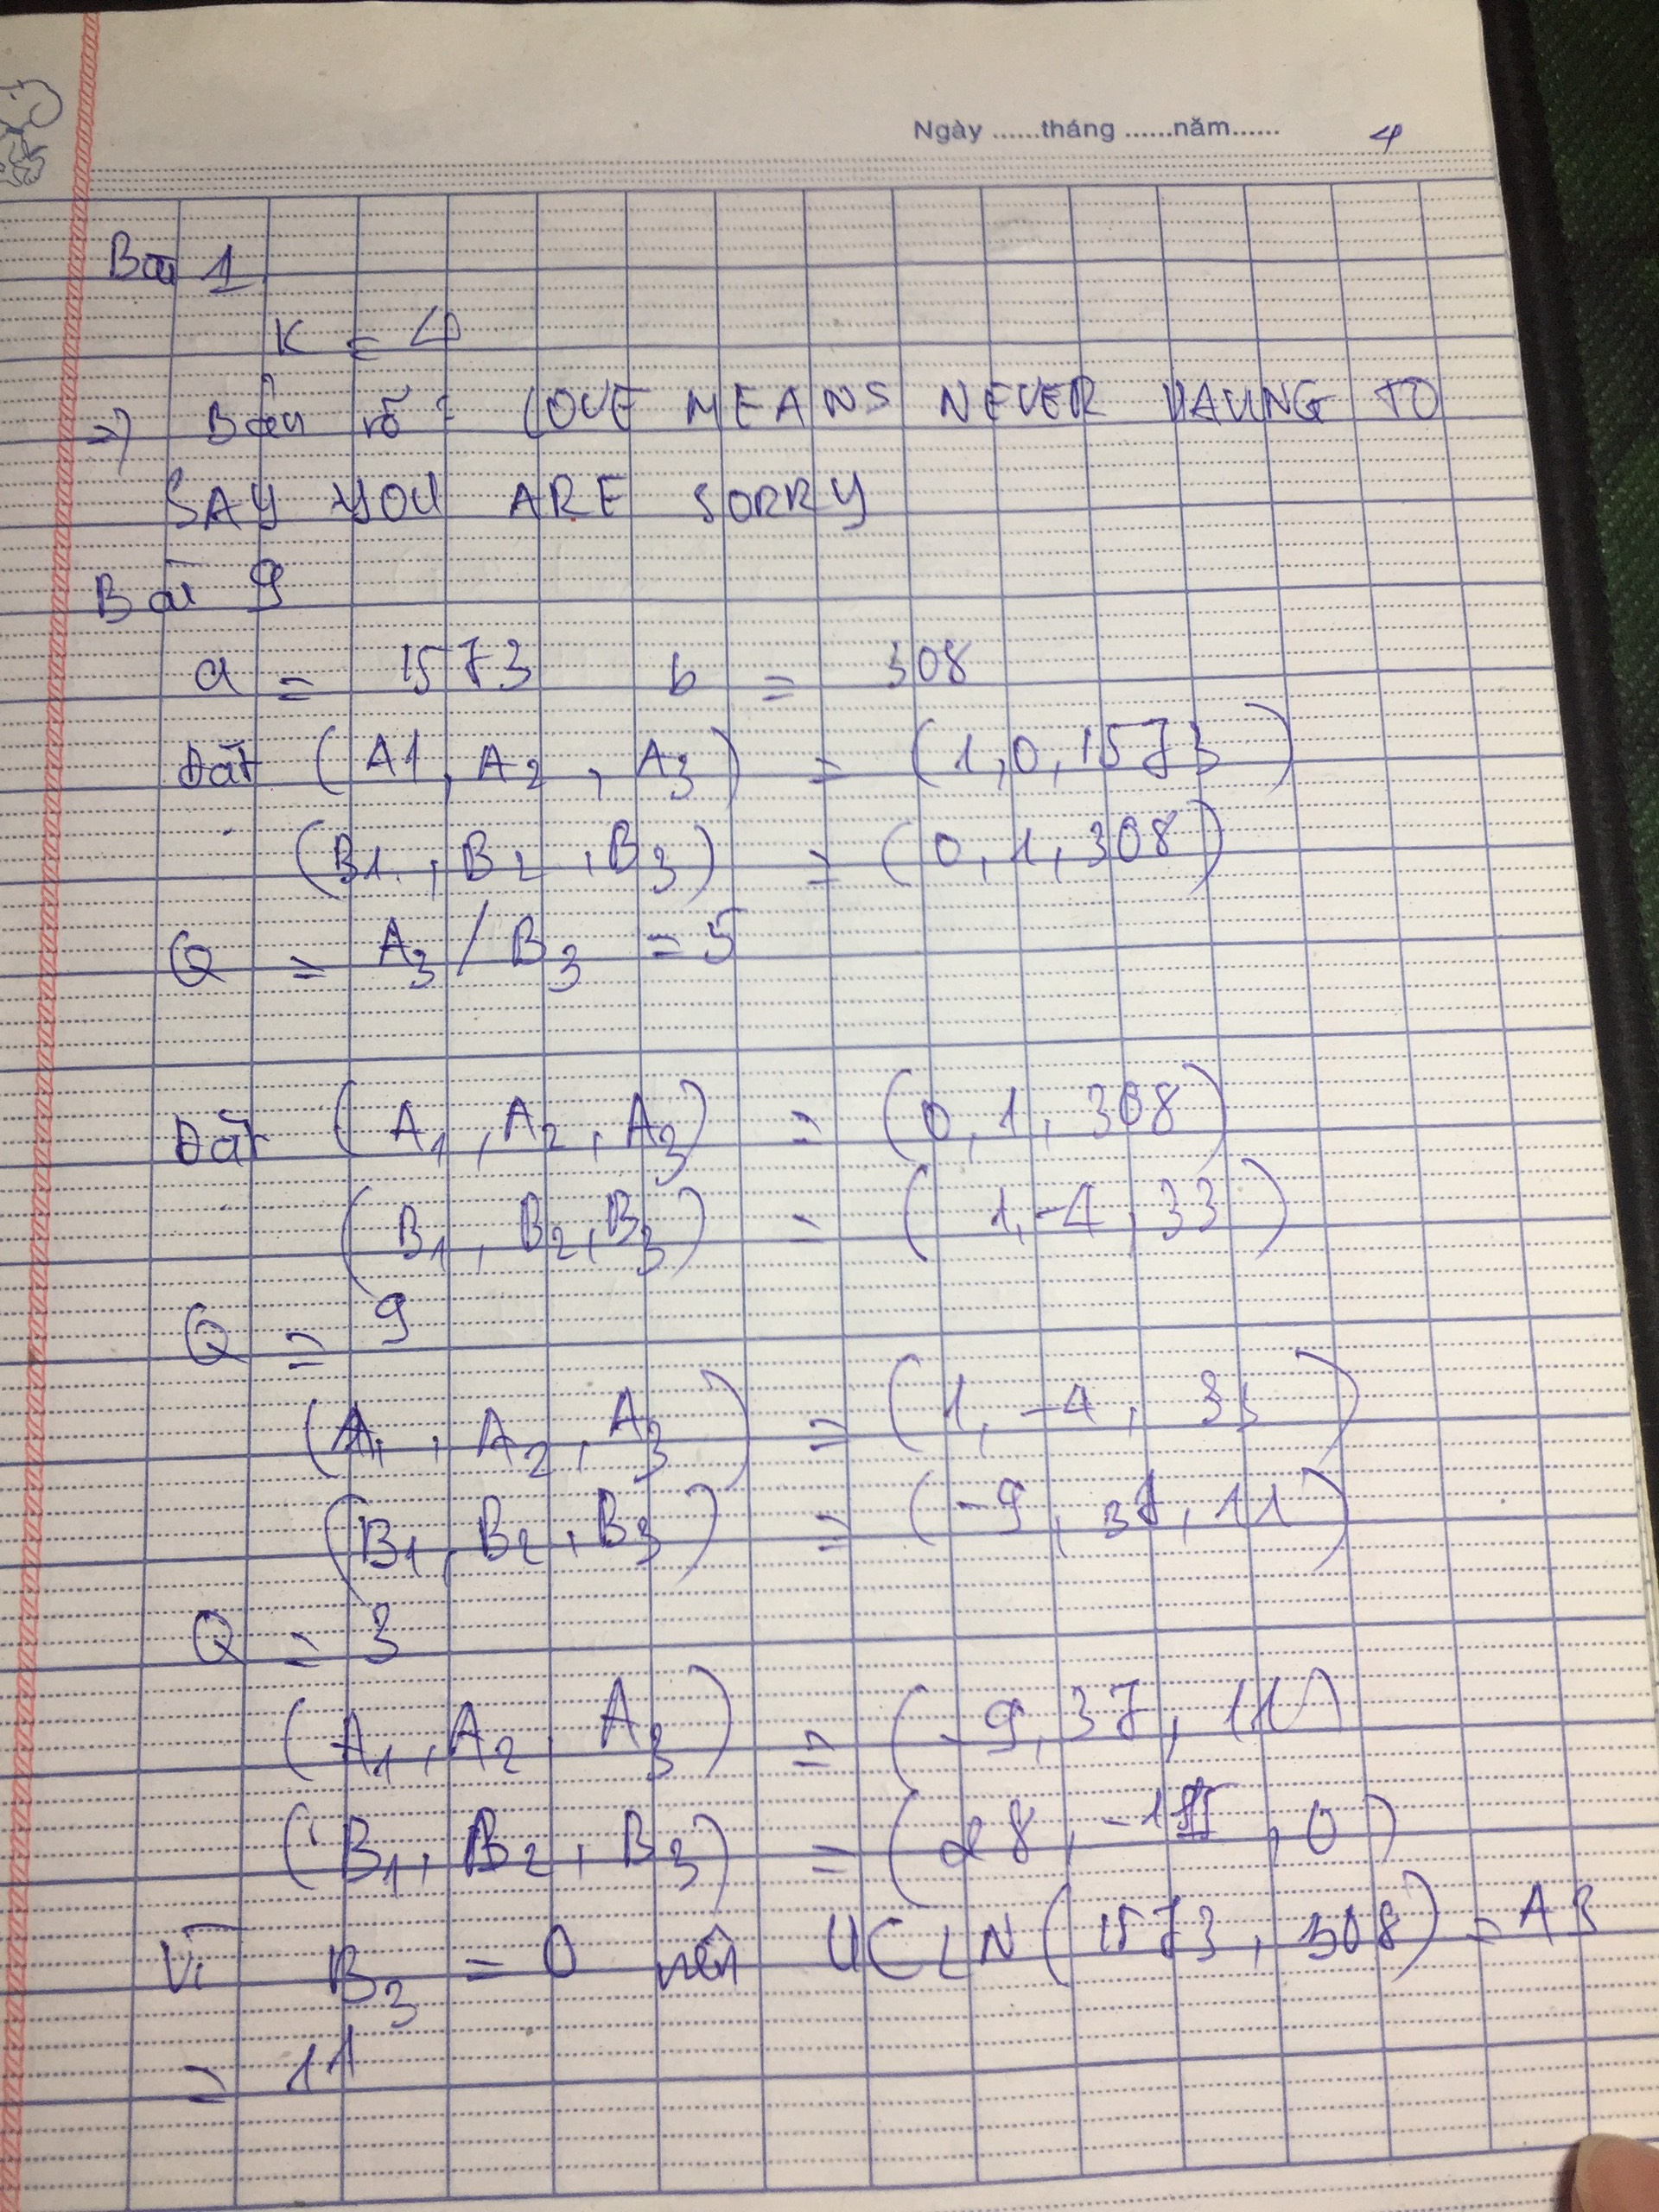 Ngày ......tháng ......năm...... 4
Bài 1
K = 4
=) Bản rõ : LOVE MEANS NEVER HAVING TO
SAY YOU ARE SORRY
Bài 9
a = 1573 b = 308
Đặt (A1, A2, A3) = (1, 0, 1573)
(B1, B2, B3) = (0, 1, 308)
Q = A3 / B3 = 5
Đặt (A1, A2, A3) = (0, 1, 308)
(B1, B2, B3) = (1, -4, 33)
Q = 9
(A1, A2, A3) = (1, -4, 33)
(B1, B2, B3) = (-9, 37, 11)
Q = 3
(A1, A2, A3) = (-9, 37, 11)
(B1, B2, B3) = (28, , 0)
Vì B3 = 0 nên UCLN(1573, 308) = A3
= 11